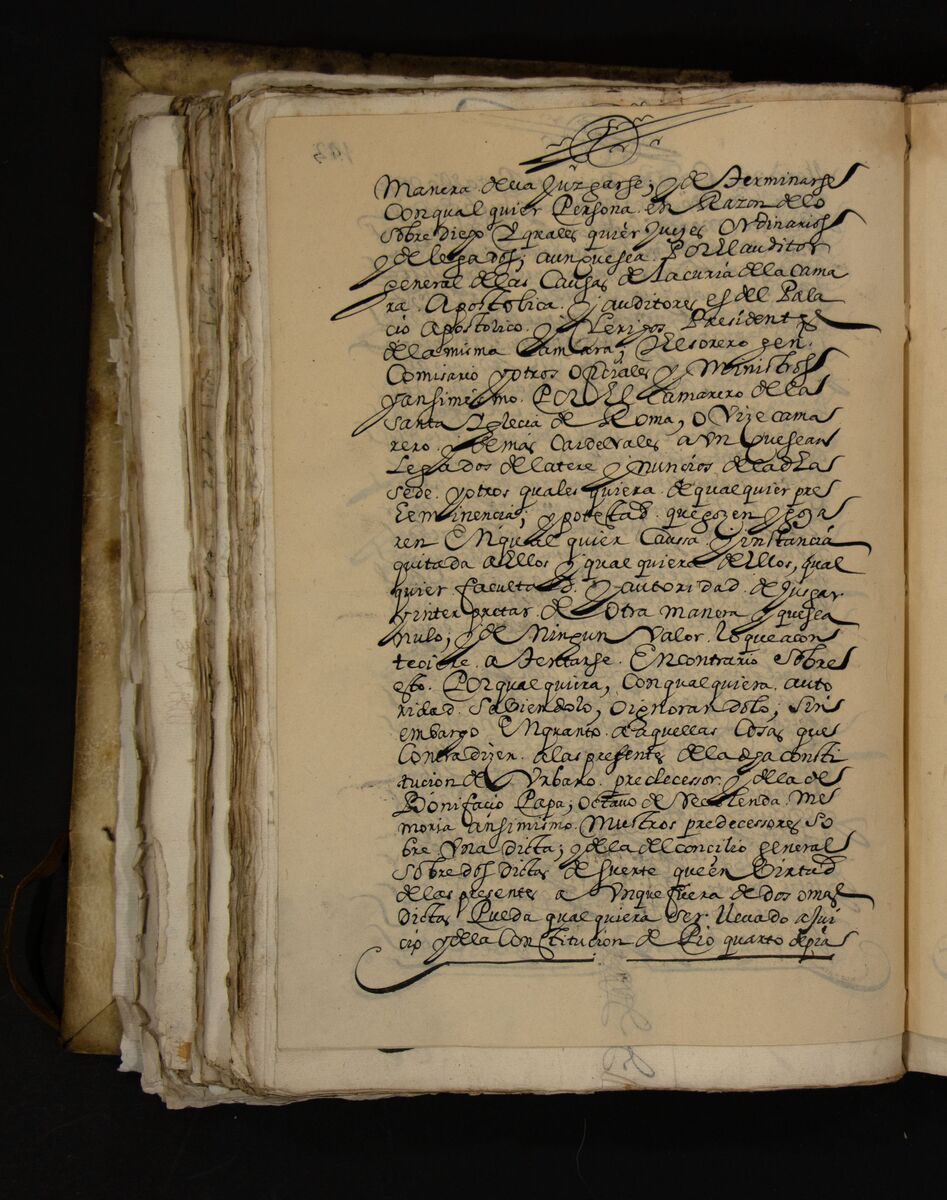 Manera deva Juzgarse; y de terminarse
Con qual quier Persona en Razon de lo
sobre diego y quales quier Jueses Ordinarios
y delegados; aunque sea. Por El auditor
general de las Causas de la curia de la Cama
ra. Apostolica. y auditores es del Pala
cio Apostolico. y Clerigos, Presidentes
de la misma Camara, thesorero gen.
Comisario y otros oficiales y Ministros
y ansimesmo. Por El Camarero de la
Santa Yglecia de Roma, o Vize cama
rero y demas Cardenales aun que sean
Legados de latere y nuncios de la dha
sede. y otros quales quiera de qual quier pre
Eeminencia; y potestad. que gozen y goza
ren En qual quier Caussa y instancia
quitada a Ellos y qual quiera de Ellos, qual
quier facultad. y autoridad de Jusgar
y inter pretar de Otra manera y que sea
Nulo; y de Ningun Valor. lo que acon
teciere a tentarse. En contrario sobre
esto. Por qual quiera, Con qual quiera auto
ridad. Sabiendolo, o ignorandolo; sin
embargo En quanto a aquellas Cosas que
Contra dijen a las presentes de la dha consti
tucion de Vrbano predecessor y de la de
Bonifacio Papa; Octavo de Recolenda Me
moria ansimismo. Nuestros predecessores So
bre Una dicta; y de la del concilio general
Sobre dos dictas de suerte que en Virtud
de las presentes a Unque fuera de dos o mas
Dictas Pueda qual quiera Ser llevado a Jui
cio y de la Constitucion de Pio quarto de pia